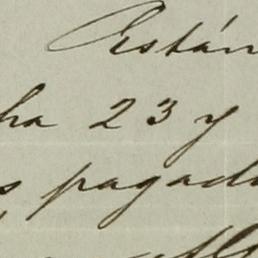 Están
ha 23 y
s pagad